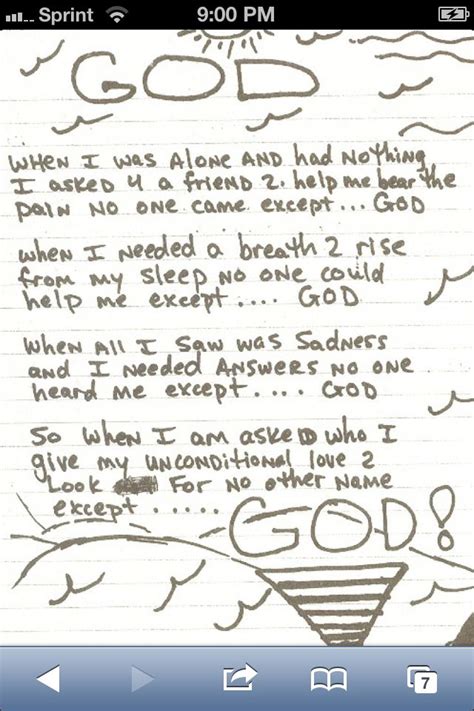 Sprint 9:00 PM
GOD
WHEN I WAS ALONE AND had NOthiNg
I asked 4 a fRiEND 2. help me beaR the
pain NO ONE came except... GOD
when I Needed a breath 2 Rise
from my sleep NO ONE could
help me except.... GOD
WHEN All I SAW WAS SadNess
and I NEEDED ANSWERS NO ONE
heard me except.... GOD
So when I am askeD who I
give my uNconditional love 2
Look FOR NO OTHER NAME
except.....
GOD!
7